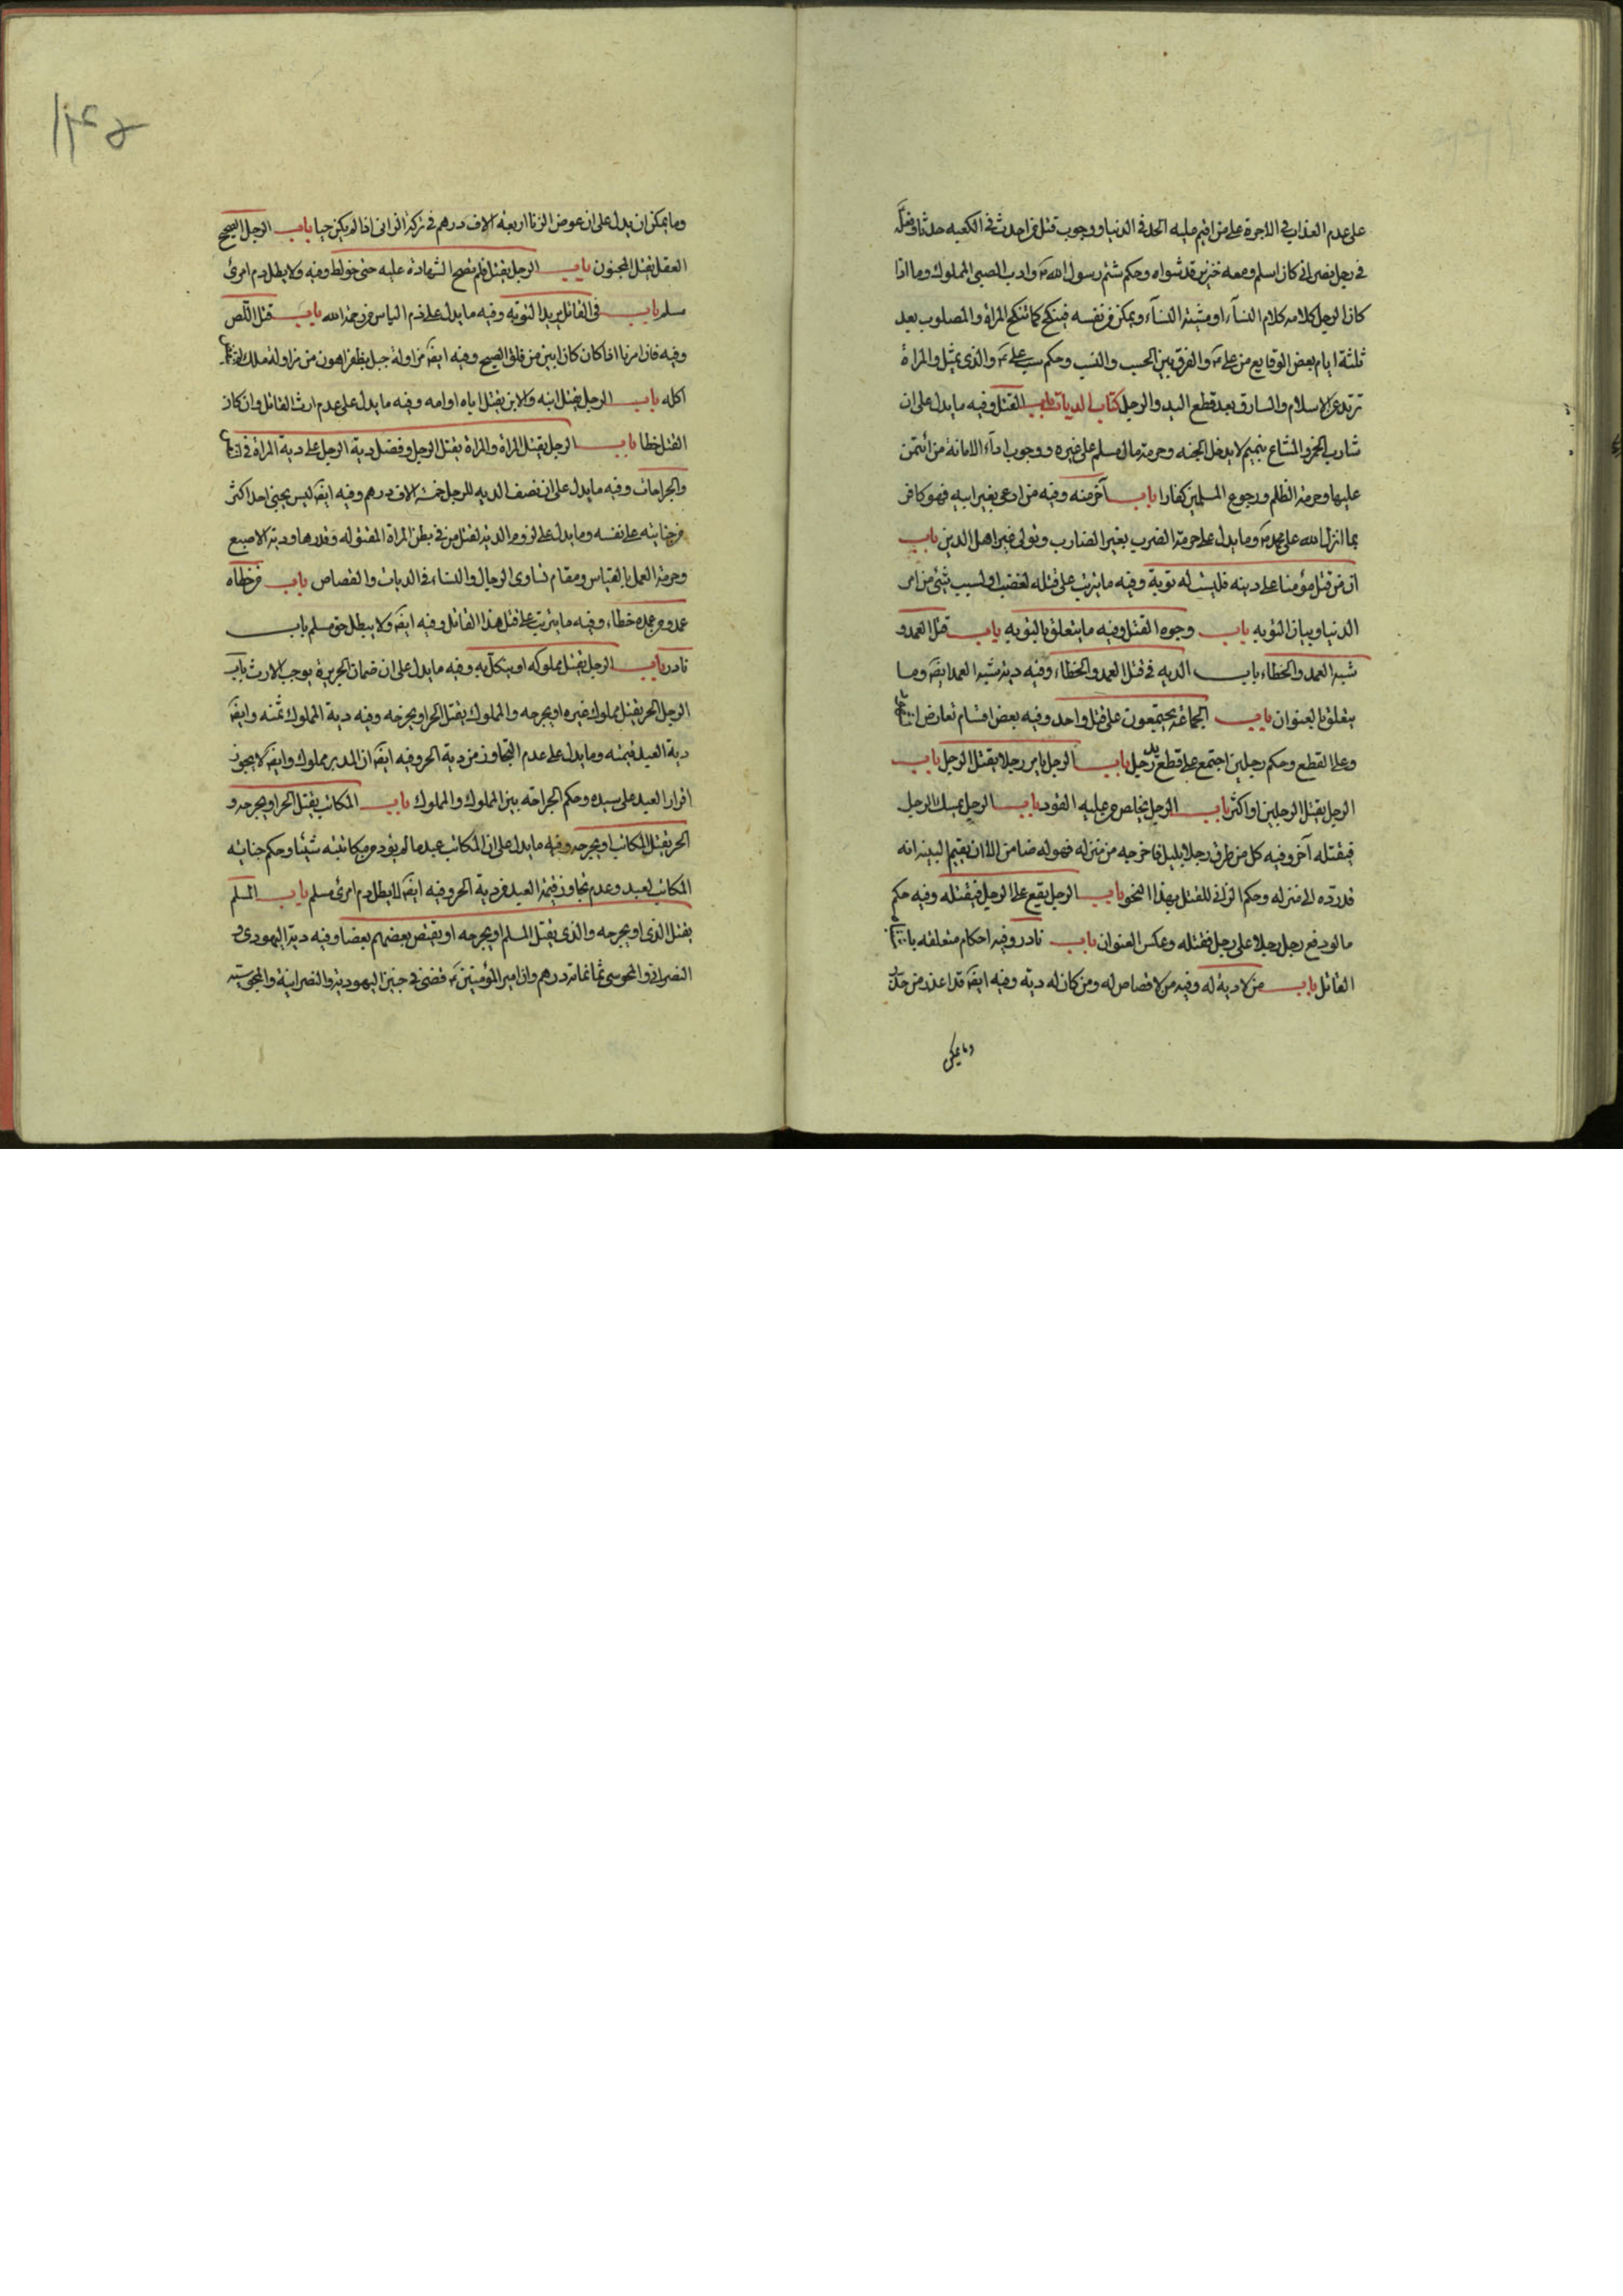 على عدم العذاب فى الاجرة على من اقيم عليه الحد فى الدنيا ووجوب قتل من احدث فى الكعبه حدثا وفيه
فى رجل نصرانى كان اسلم ومعه خنزير قد شواه وحكم شتم رسول الله ص وادب الصبى المملوك وما اذا
كان الرجل كلامه كلام النسآء او مشيته النسآء ويمكن من نفسه فينكح كما تنكح المراة والمصلوب بعد
ثلثة ايام بعض الوقايع من على ع والفرق بين الحسب والنسب وحكم سب على ع والذى يمثل والمراة
ترتد عن الاسلام والسارق بعد قطع اليد والرجل كتاب الديات باب القتل وفيه ما يدل على ان
شارب الخمر والمشاء بنميم لا يدخل الجنه وحرمة مال مسلم على غيره ووجوب ادآء الامانة من ائتمن
عليها وحرمة الظلم ورجوع المسلمين كفارا باب آخر منه وفيه من ادعى بغير ابيه فهو كافر
بما انزل الله على محمد ص وما يدل على حرمة الضرب بغير الضارب وتولى غير اهل الدين باب
ان من قتل مؤمنا على دينه فليست له توبة وفيه ما يترتب على قتله لغضب او لسبب شئ من امر
الدنيا وبيان التوبه باب وجوه القتل وفيه ما يتعلق بالتوبه باب قتل العمد و
شبه العمد والخطاء باب الديه فى قتل العمد والخطاء وفيه دية شبه العمد ايضا وما
يتعلق بالعنوان باب الجماعة يجتمعون على قتل واحد وفيه بعض اقسام تعارض
وعلى القطع وحكم رجلين اجتمع على قطع يد رجل باب الرجل يامر رجلا بقتل الرجل باب
الرجل يقتل الرجلين او اكثر باب الرجل يخلص من عليه القود باب الرجل يمسك الرجل
فيقتله آخر وفيه كل من طرق رجلا بليل فاخرجه من منزله فهو له ضامن الا ان يقيم البينة انه
قد رده الى منزله وحكم الزانى للقتل بهذا النحو باب الرجل يقع على الرجل فيقتله وفيه حكم
ما لو دفع رجل رجلا على رجل فقتله وعكس العنوان باب نادر وفيه احكام متعلقه
القاتل باب من لا دية له وفيه من لا قصاص له ومن كان له دية وفيه ايضا قد اعذر من حذر
وما يمكن
وما يمكن ان يدل على ان عوض الزنا اربعة الاف درهم فى تركة الزانى اذا لم يكن حيا باب الرجل الصحيح
العقل يقتل المجنون باب الرجل يقتل فلم تصح الشهادة عليه حتى خولط وفيه ولا يطل دم امرئ
مسلم باب فى القاتل يريد التوبه وفيه ما يدل على ذم الياس من رحمة الله باب قتل اللص
وفيه فان امرنا اذا كان كان ابين من فلق الصبح وفيه ايضا مزاولة جبل بظفر اهون من مزاولة ملك
اكله باب الرجل يقتل ابنه والابن يقتل اباه او امه وفيه ما يدل على عدم ارث القاتل وان كان
القتل خطا باب الرجل يقتل المراة والمراة يقتل الرجل وفضل دية الرجل على دية المراة فى
والجراحات وفيه ما يدل على ان نصف الديه للرجل خمسة الاف درهم وفيه ايضا ليس يجنى احد اكثر
من جنايته على نفسه وما يدل على لزوم الدية لقتل من فى بطن المراة المقتوله وقدرها ودية الاصبع
وحرمة العمل بالقياس ومقام تساوى الرجال والنساء فى الديات والقصاص باب من خطاه
عمد ومن عمده خطاء وفيه ما يترتب على قتل هذا القاتل وفيه ايضا ولا يبطل حق مسلم باب
نادر باب الرجل يقتل مملوكه او ينكل به وفيه ما يدل على ان ضمان الجريرة يوجب الارث باب
الرجل الحر يقتل مملوك غيره او يجرحه والمملوك يقتل الحر او يجرحه وفيه دية المملوك ثمنه وايضا
دية العبد قيمته وما يدل على عدم التجاوز من دية الحر وفيه ايضا ان المدبر مملوك وايضا لا يجوز
اقرار العبد على سيده وحكم الجراحة بين المملوك والمملوك باب المكاتب يقتل الحر او يجرحه و
الحر يقتل المكاتب او يجرحه وفيه ما يدل على ان المكاتب عبد ما لم يؤد من مكاتبته شيئا وحكم جنايته
المكاتب لعبد وعدم تجاوز قيمة العبد من دية الحر وفيه ايضا لا يبطل دم امرئ مسلم باب المسلم
يقتل الذمى او يجرحه والذمى يقتل المسلم او يجرحه او يقتص بعضهم بعضا وفيه دية اليهودى و
النصرانى والمجوسى ثمانمائة درهم وان امير المؤمنين ع قضى فى جنين اليهودية والنصرانية والمجوسية